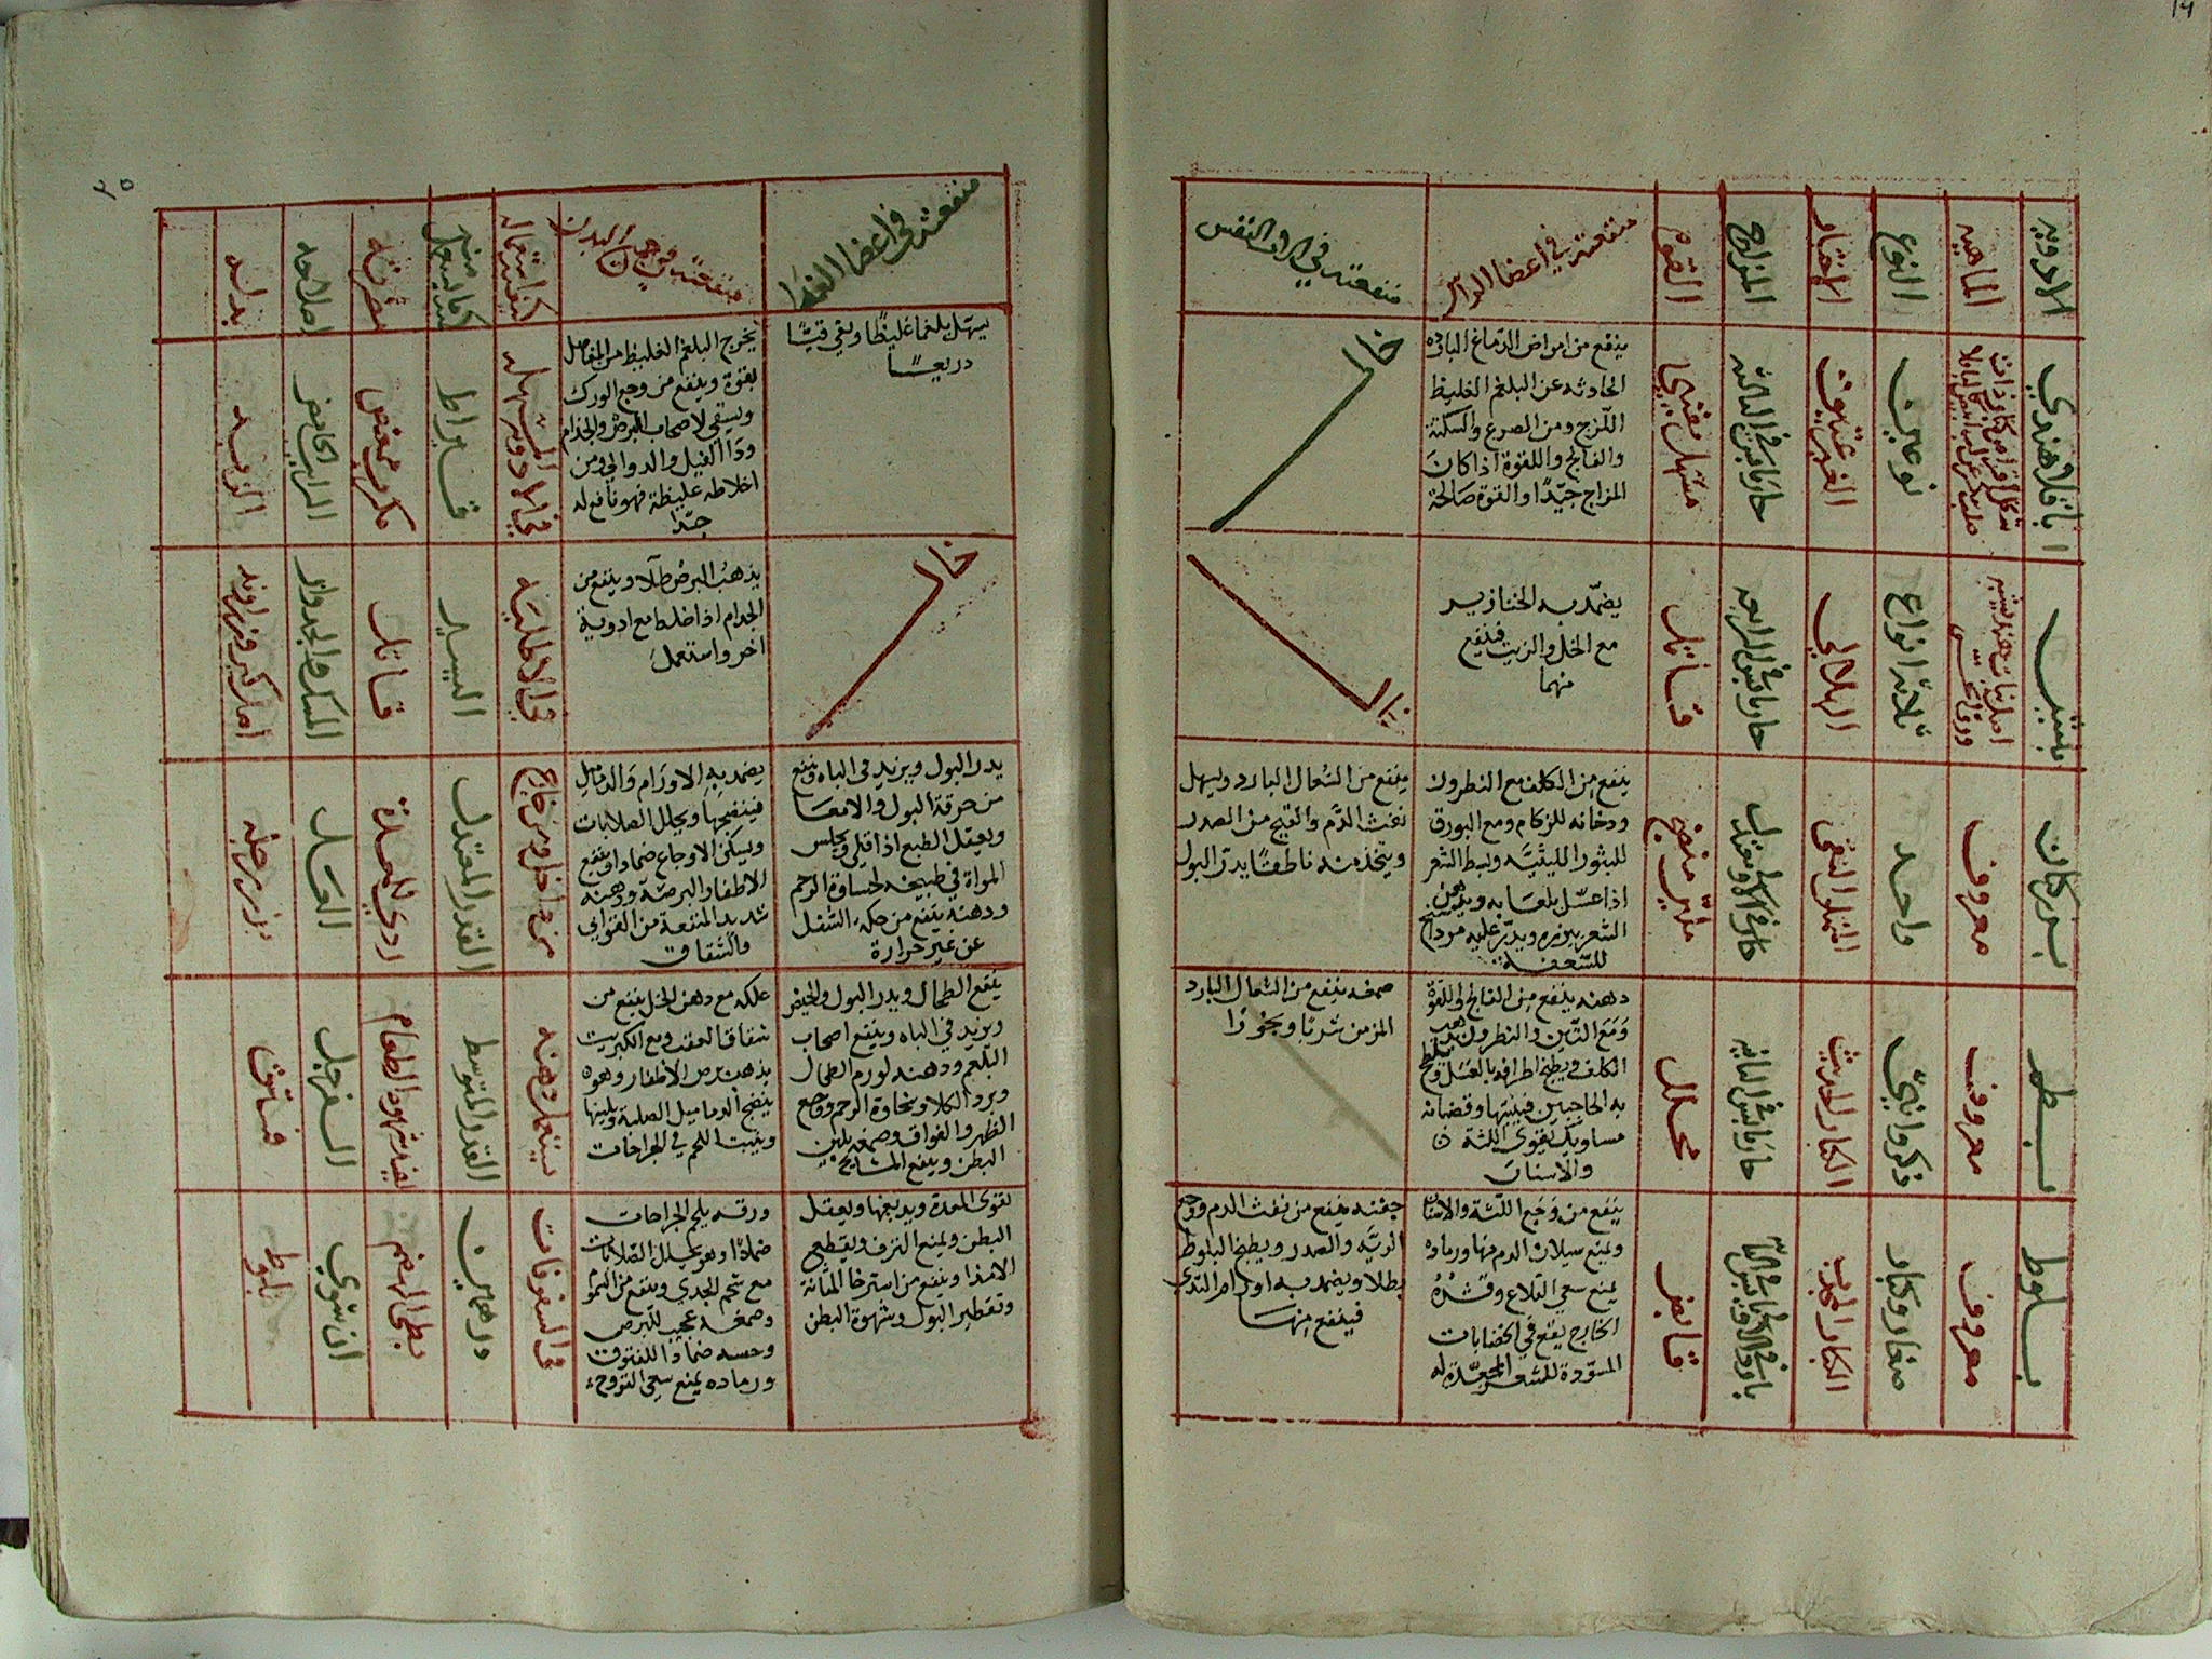 الادويه
الماهيه
النوع
الاختيار
المزاج
القوه
منفعته في اعضا الراس
منفعته في الات النفس
باقلا هندي
نوعين
مسهل مقيي
ينفع من امراض الدماغ البارده
الحادثه عن البلغم الغليظ
اللزج ومن الصرع والسكتة
والفالج واللقوة اذا كان
المزاج جيدا والقوة صالحة
خال
بيش
ثلاثة انواع
الهلالي
حار يابس في الرابعه
قاتل
يضمد به الخنازير
مع الخل والزيت فينفع
منها
خال
بزر كتان
معروف
واحد
الممتلو النقي
ملين منضج
ينفع من الكلف مع النطرون
ودخانه للزكام ومع البورق
للبثور اللينيه ويبسط الشعر
اذا غسل بلعابه
للسعفه
ينفع من السعال البارد ويسهل
نفث الدم والقيح من الصدر
ويتخذ منه ناطفا يدر البول
بطم
معروف
ذكر وانثى
الكبار الحديث
حار يابس في الثانيه
محلل
دهنه ينفع من الفالج واللقوة
ومع التين والنطرون
به الحاجبين فينبتها وقضبانه
مساويك يقوي اللثة
والاسنان
صمغه ينفع من السعال البارد
المزمن شربا وبخورا
بلوط
معروف
صغار وكبار
قابض
ينفع من وجع اللثة والاسنان
ويمنع سيلان الدم منها ورماده
يمنع سعي القلاع وقشره
الخارج يقع في الخضابات
المسودة للشعر المجعدة له
جفته ينفع من نفث الدم ووجع
الرية والصدر ويطبخ البلوط
بطلا ويضمد به اورام الثدي
فينفع منها
٢٥
منفعته في اعضا الغذا
منفعته في جميع البدن
كيفية استعماله
كمية ما يستعمل منه
مضرته
اصلاحه
بدله
يسهل بلغما غليظا ويقي قيئا
ذريعا
يخرج البلغم الغليظ من المفاصل
بقوة وينفع من وجع الورك
ويسقى لاصحاب البرص والجذام
ودا الفيل والدوالي ومن
اخلاطه غليظة فهو نافع له
جدا
في الادوية المسهله
قيراط
مكرب ممغص
خال
يذهب البرص طلا وينفع من
الجذام اذا خلط مع ادوية
اخر واستعمل
في الاطليه
اليسير
قاتل
المسك والجدوار
يدر البول ويزيد في الباه وينفع
من حرقة البول والامعا
ويعقل الطبع اذا قلي ويجلس
المراة في طبيخه لحساوة الرحم
ودهنه ينفع من حكة السفل
عن غير حرارة
يضمد به الاورام والدماميل
فينضجها ويحلل الصلابات
ويسكن الاوجاع ضمادا وينفع
الاظفار البرصة ودهنه
شديد المنفعة من القوابي
والشقاق
من داخل ومن خارج
القدر المعتدل
ردي للمعدة
العسل
بزر مرحلبه
ينفع الطحال ويدر البول والحيض
ويزيد في الباه وينفع اصحاب
البلغم ودهنه لورم الطحال
وبرد الكلا ونخاوة الرحم ووجع
الظهر والفواق وصمغه يلين
البطن وينفع المشايخ
علكه مع دهن الخل ينفع من
شقاق العقد ومع الكبريت
يذهب برص الاظفار وهو
ينضج الدماميل الصلبة ويلينها
وينبت اللحم في الجراحات
يستعمل دهنه
القدر المتوسط
السفرجل
فستق
يقوي المعدة ويدبغها ويعقل
البطن ويمنع النزف ويقطع
الامذا وينفع من استرخا المثانة
وتقطير البول وشهوة البطن
ورقه يلحم الجراحات
ضمادا وهو يحلل الصلابات
مع شحم الجدي وينفع من السموم
وصمغه عجيب للبرص
وحبه ضمادا للفتوق
ورماده يمنع سعي القروح
في السفوفات
درهمين
بطي الهضم
ان شوي